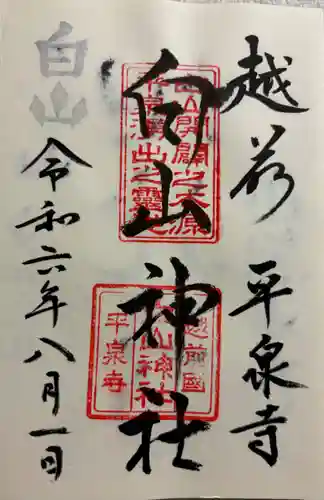 越前 平泉寺
白山神社
令和六年八月一日
白山
白山開闢之本源
平泉湧出之靈地
越前國
白山神社
平泉寺